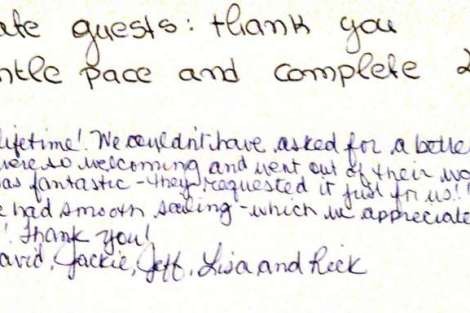 ate guests: thank you
ntle pace and complete
lifetime! We couldn't have asked for a bette
were so welcoming and went out of their wa
as fantastic - they requested it just for us!!
e had smooth sailing - which we appreciate
! Thank you!
avid, Jackie, Jeff, Lisa and Rick